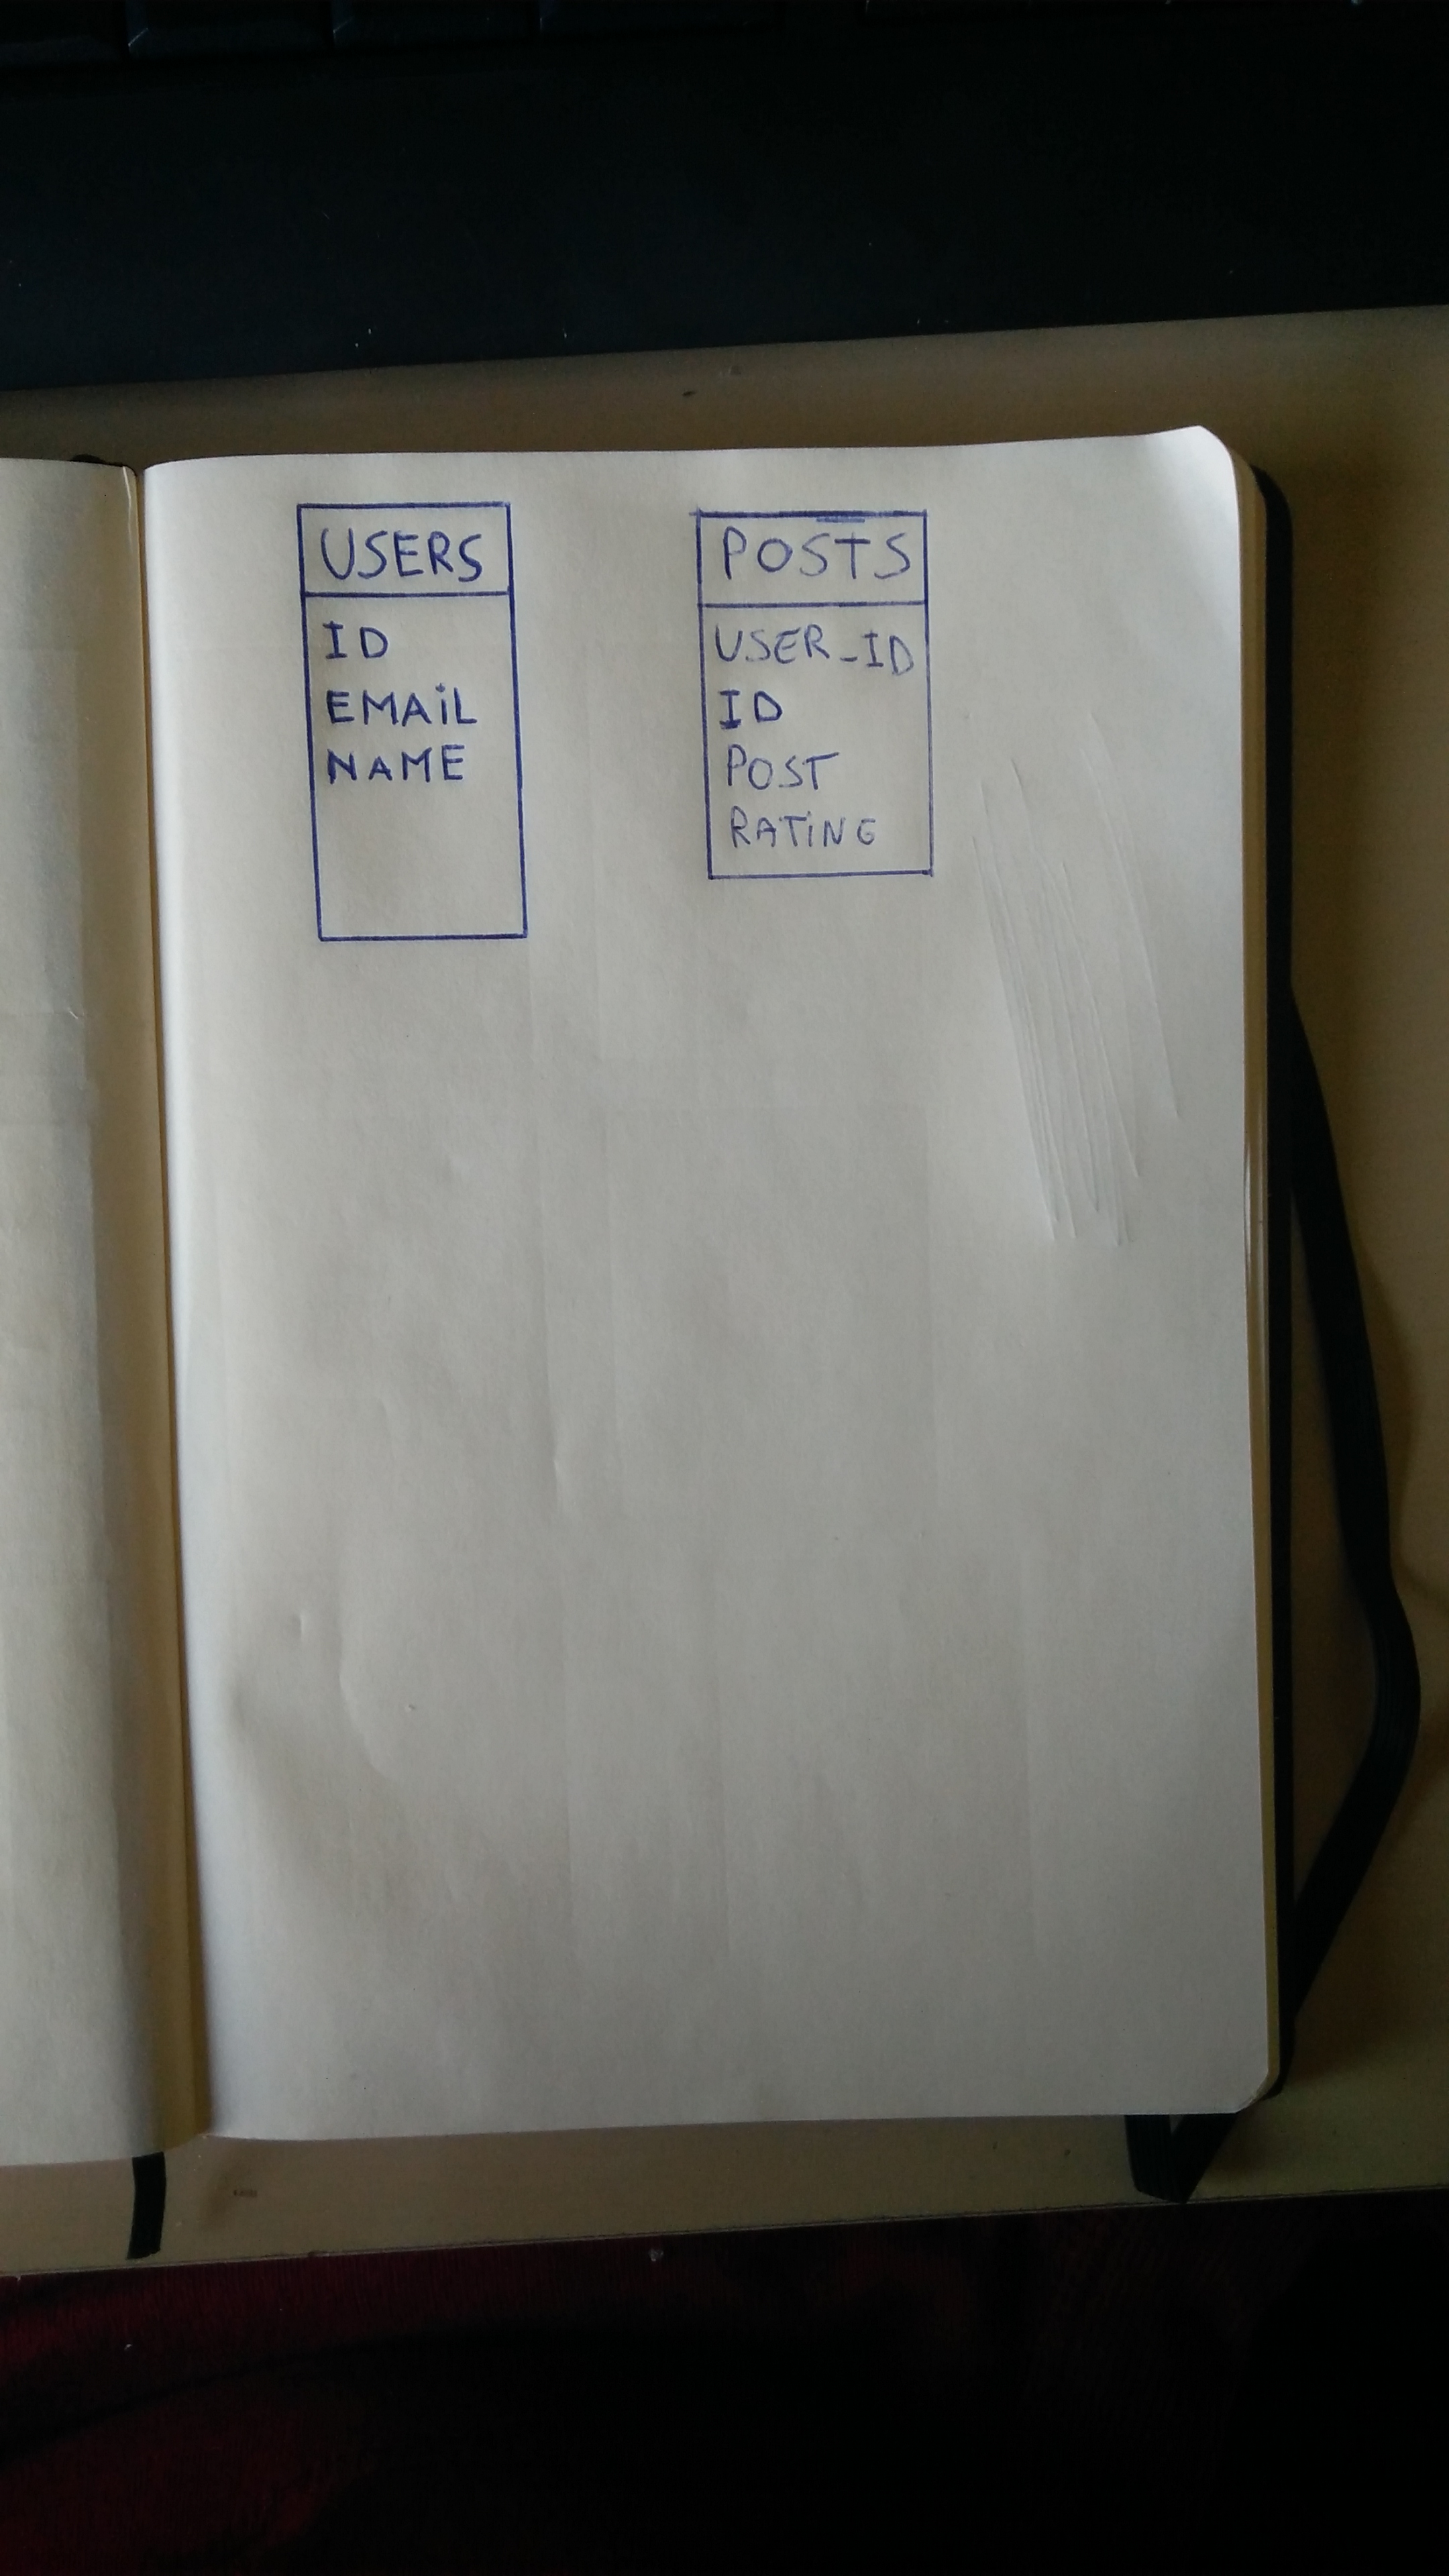 USERS
ID
EMAiL
NAME
POSTS
USER_ID
ID
POST
RATiNG